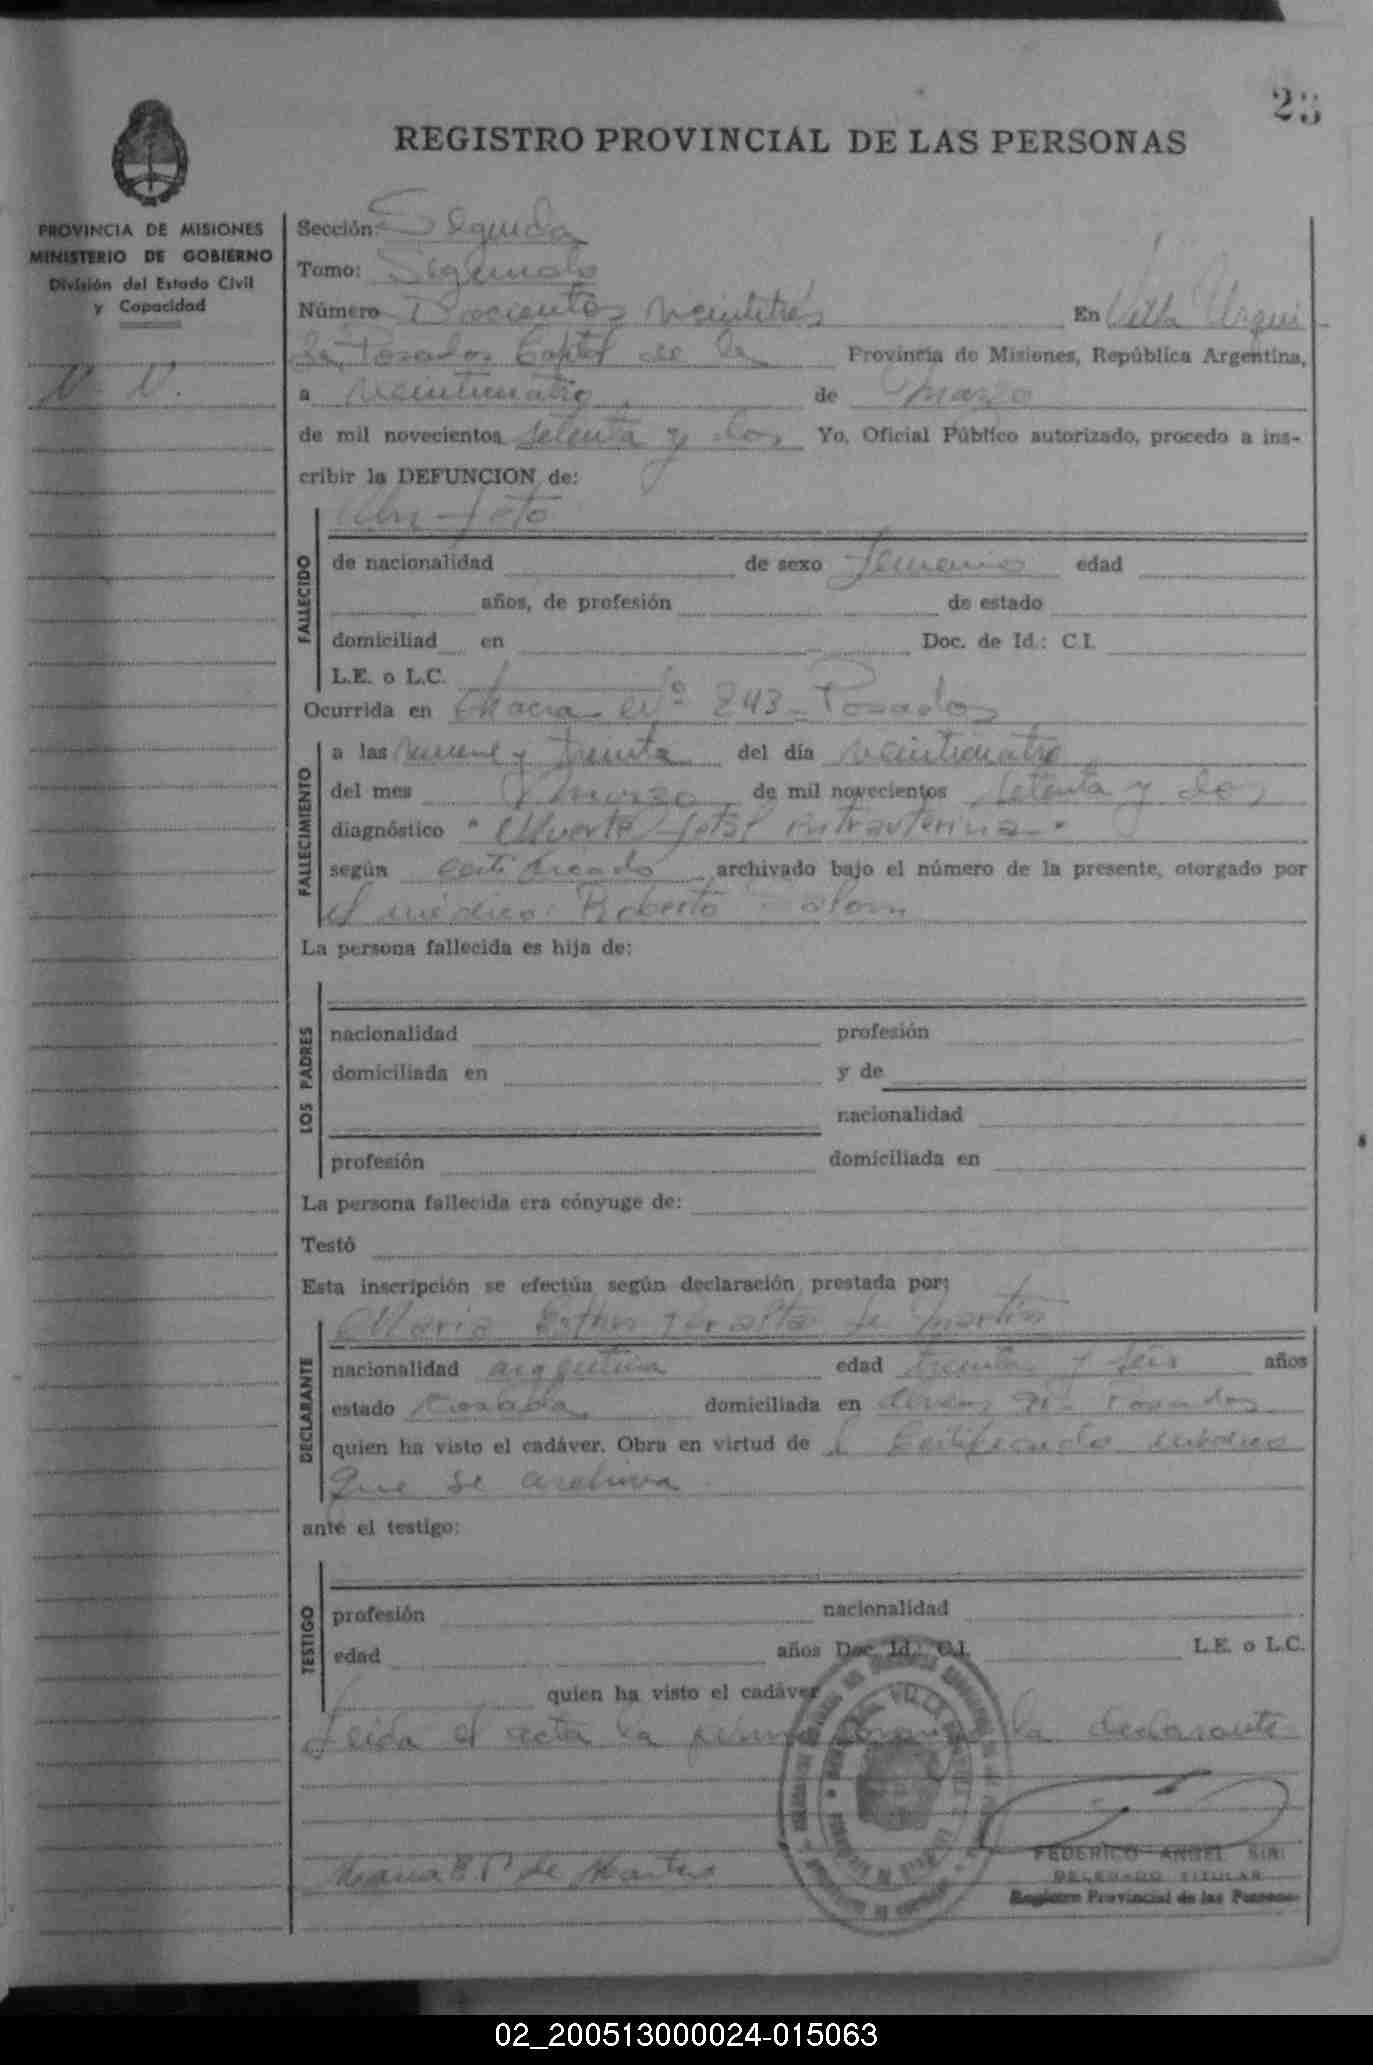 23
REGISTRO PROVINCIAL DE LAS PERSONAS
PROVINCIA DE MISIONES
MINISTERIO DE GOBIERNO
División del Estado Civil
y Capacidad
N. N.
Sección: Segunda
Tomo: Segundo
Número Doscientos veintitrés En Villa Urqui
za, Posadas Capital de la Provincia de Misiones, República Argentina,
a veinticuatro de marzo
de mil novecientos setenta y dos Yo, Oficial Público autorizado, procedo a ins-
cribir la DEFUNCION de:
Un feto
FALLECIDO
de nacionalidad de sexo femenino edad
años, de profesión de estado
domiciliad en Doc. de Id.: C.I.
L.E. o L.C.
Ocurrida en Chacra Nº 243 - Posadas
FALLECIMIENTO
a las nueve y treinta del día veinticuatro
del mes marzo de mil novecientos setenta y dos
diagnóstico "Muerte fetal intrauterina"
según certificado archivado bajo el número de la presente, otorgado por
el médico: Roberto
La persona fallecida es hija de:
LOS PADRES
nacionalidad profesión
domiciliada en y de
nacionalidad
profesión domiciliada en
La persona fallecida era cónyuge de:
Testó
Esta inscripción se efectúa según declaración prestada por:
María Esther Peralta de Martin
DECLARANTE
nacionalidad argentina edad treinta y seis años
estado casada domiciliada en Posadas
quien ha visto el cadáver. Obra en virtud de l Certificado médico
que se archiva
ante el testigo:
TESTIGO
profesión nacionalidad
edad años Doc. Id.: C.I. L.E. o L.C.
quien ha visto el cadáver
Leída el acta la firma la declarante
Maria E. P. de
FEDERICO ANGEL SIRI
DELEGADO TITULAR
Registro Provincial de las Personas
02_200513000024-015063